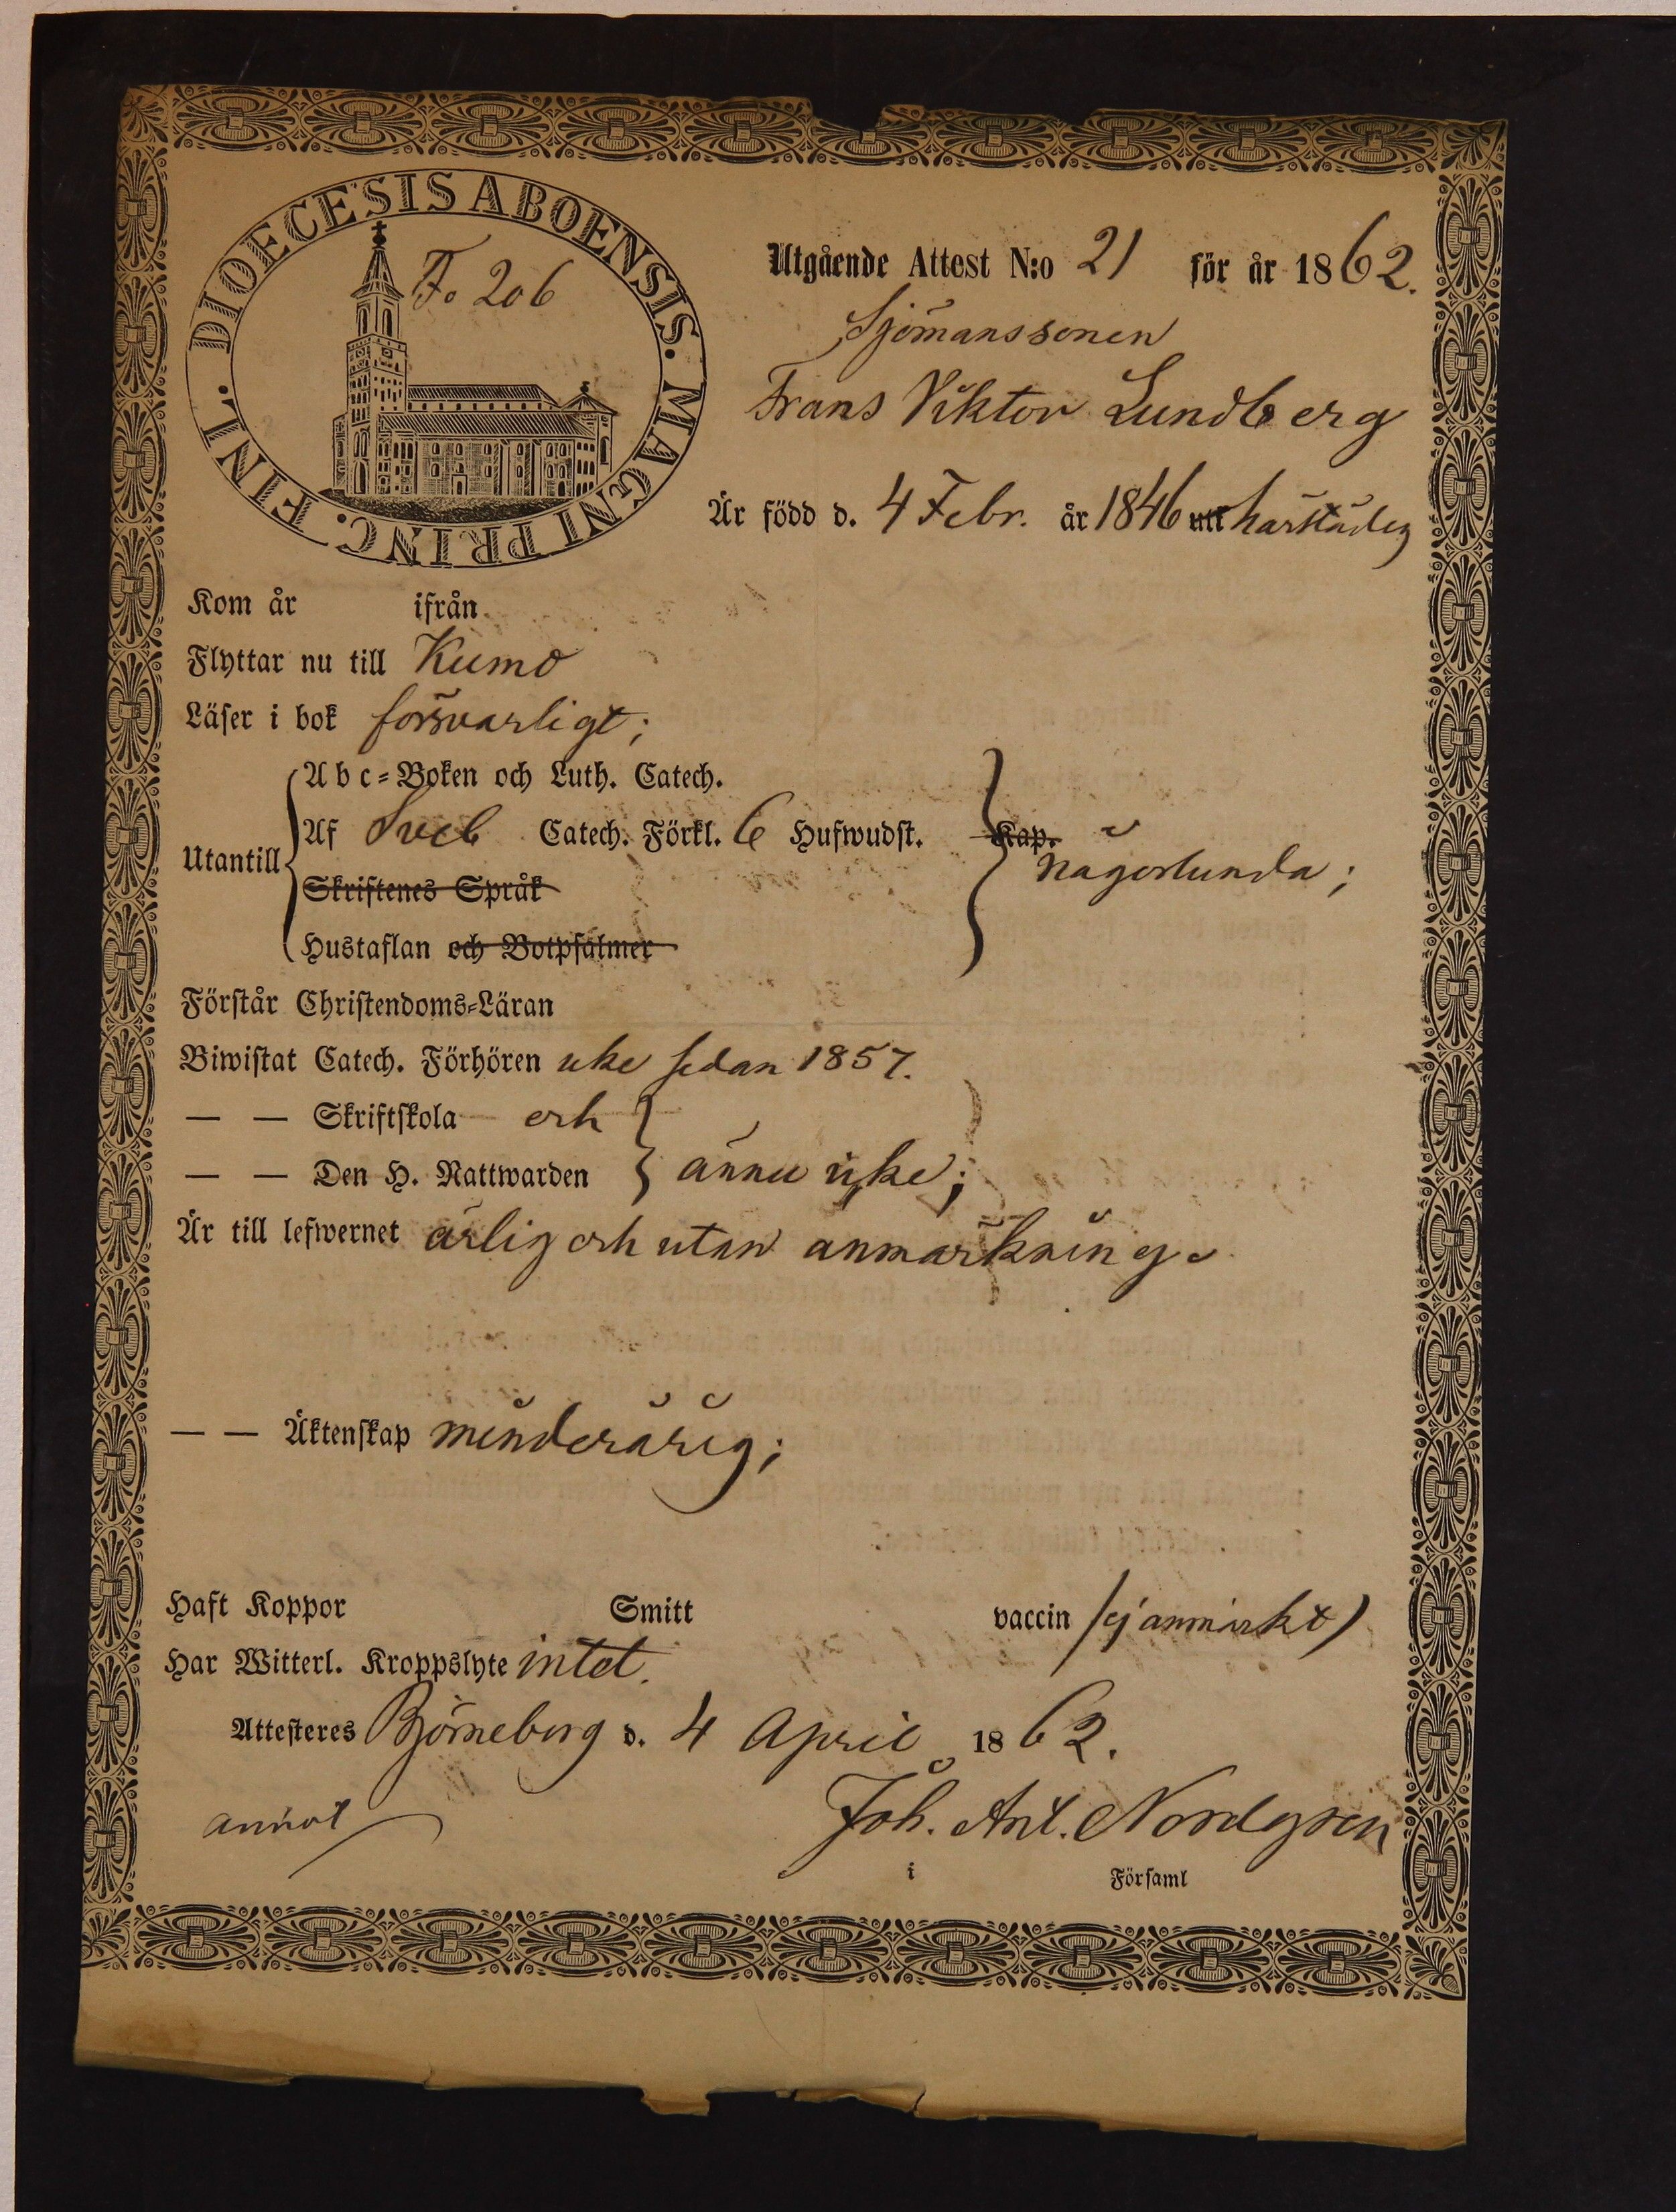 DIOECESIS ABOENSIS. MAGNI PRINC. FINL.
Fo 206
Utgående Attest N:o 21 för år 1862.
Sjömanssonen
Frans Viktor Lundberg
Är född d. 4 Febr. år 1846 uti härstädes
Kom år ifrån
Flyttar nu till Kumo
Läser i bok försvarligt;
Utantill
Abc-Boken och Luth. Catech.
Af Sveb Catech. Förkl. 6 Hufwudst. Kap.
någorlunda;
Skriftenes Språk
Hustaflan och Botpsalmer
Förstår Christendoms-Läran
Biwistat Catech. Förhören icke sedan 1857.
— — Skriftskola och
— — Den H. Nattwarden ännu icke;
Är till lefwernet ärlig och utan anmärkning.
— — Äktenskap minderårig;
Haft Koppor Smitt vaccin (ej anmärkt)
Har Witterl. Kroppslyte intet.
Attesteres Björneborg d. 4 April 1862.
Joh. Ant. Nordgren
i Församl